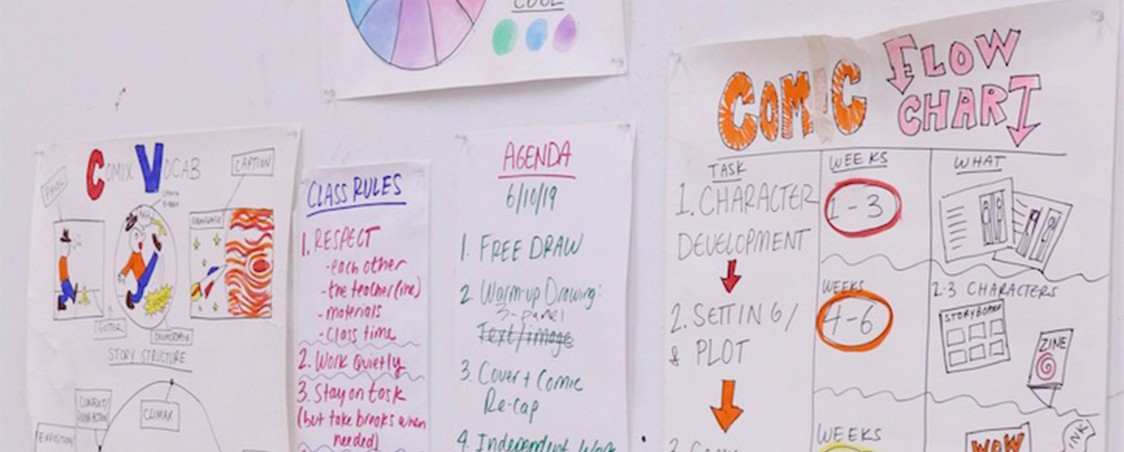 COOL
COMIX VOCAB
PANEL
CAPTION
GUTTER
STORY STRUCTURE
CLIMAX
EXPOSITION
CLASS RULES
1. RESPECT
- each other
- the teacher (me)
- materials
- class time
2. Work Quietly
3. Stay on task
(but take breaks when
needed)
AGENDA
6/10/19
1. FREE DRAW
2. Warm-up Drawing:
3-panel
Text/image
3. Cover + Comic
Re-cap
4. Independent Work
COMIC FLOW
CHART
TASK
WEEKS
WHAT
1. CHARACTER
DEVELOPMENT
1-3
2-3 CHARACTERS
2. SETTING/
& PLOT
WEEKS
4-6
STORYBOARD
ZINE
WEEKS
WOW
INK